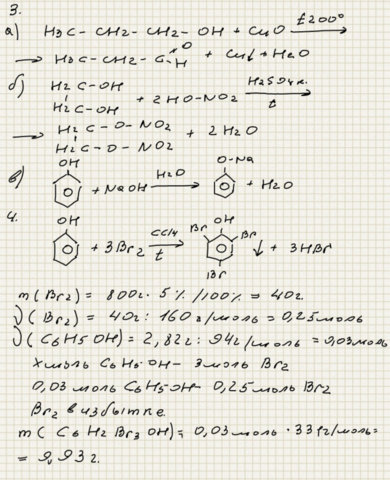 3.
а) H3C - CH2 - CH2 - OH + CuO t 200° →
→ H3C - CH2 - C =O H + Cu↓ + H2O
б) H2C-OH
H2C-OH + 2HO-NO2 H2SO4 к. t →
→ H2C-O-NO2
H2C-O-NO2 + 2H2O
в) OH + NaOH H2O → O-Na + H2O
4.
OH + 3Br2 CCl4 t → Br OH Br Br ↓ + 3HBr
m(Br2) = 800г · 5% /100% = 40г.
ν(Br2) = 40г : 160г/моль = 0,25моль
ν(C6H5OH) = 2,82г : 94г/моль = 0,03моль
х моль C6H5OH - 3моль Br2
0,03 моль C6H5OH - 0,25моль Br2
Br2 в избытке.
m(C6H2Br3OH) = 0,03моль · 331г/моль=
= 9,93г.